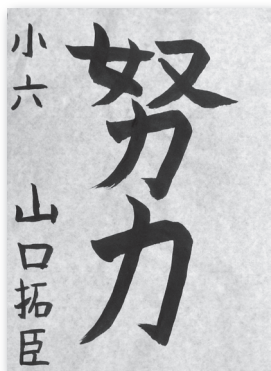 努力
小六 山口拓臣